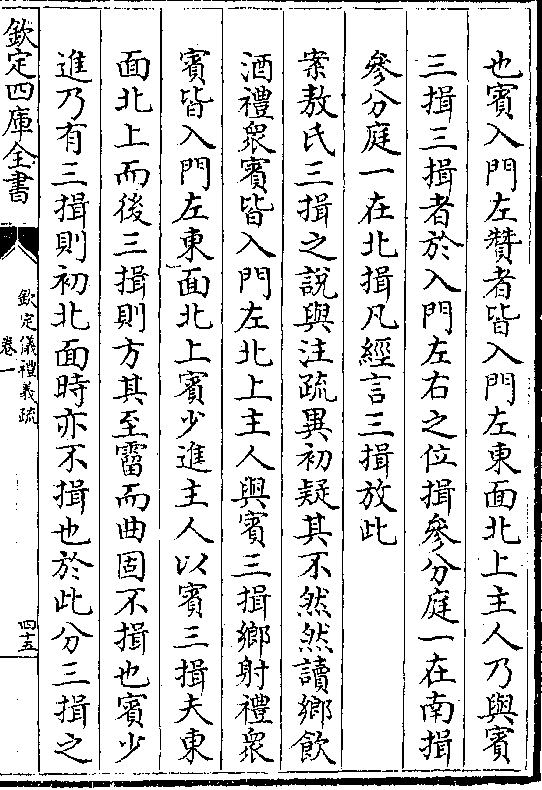 也賓入門左贊者皆入門左東面北上主人乃與賓
三揖三揖者於入門左右之位揖參分庭一在南揖
參分庭一在北揖凡經言三揖放此
案敖氏三揖之說與注疏異初疑其不然然讀鄉飲
酒禮衆賓皆入門左北上主人與賓三揖鄉射禮衆
賓皆入門左東面北上賓少進主人以賓三揖夫東
面北上而後三揖則方其至霤而曲固不揖也賓少
進乃有三揖則初北面時亦不揖也於此分三揖之
欽定四庫全書
欽定儀禮義疏
卷一
四十五